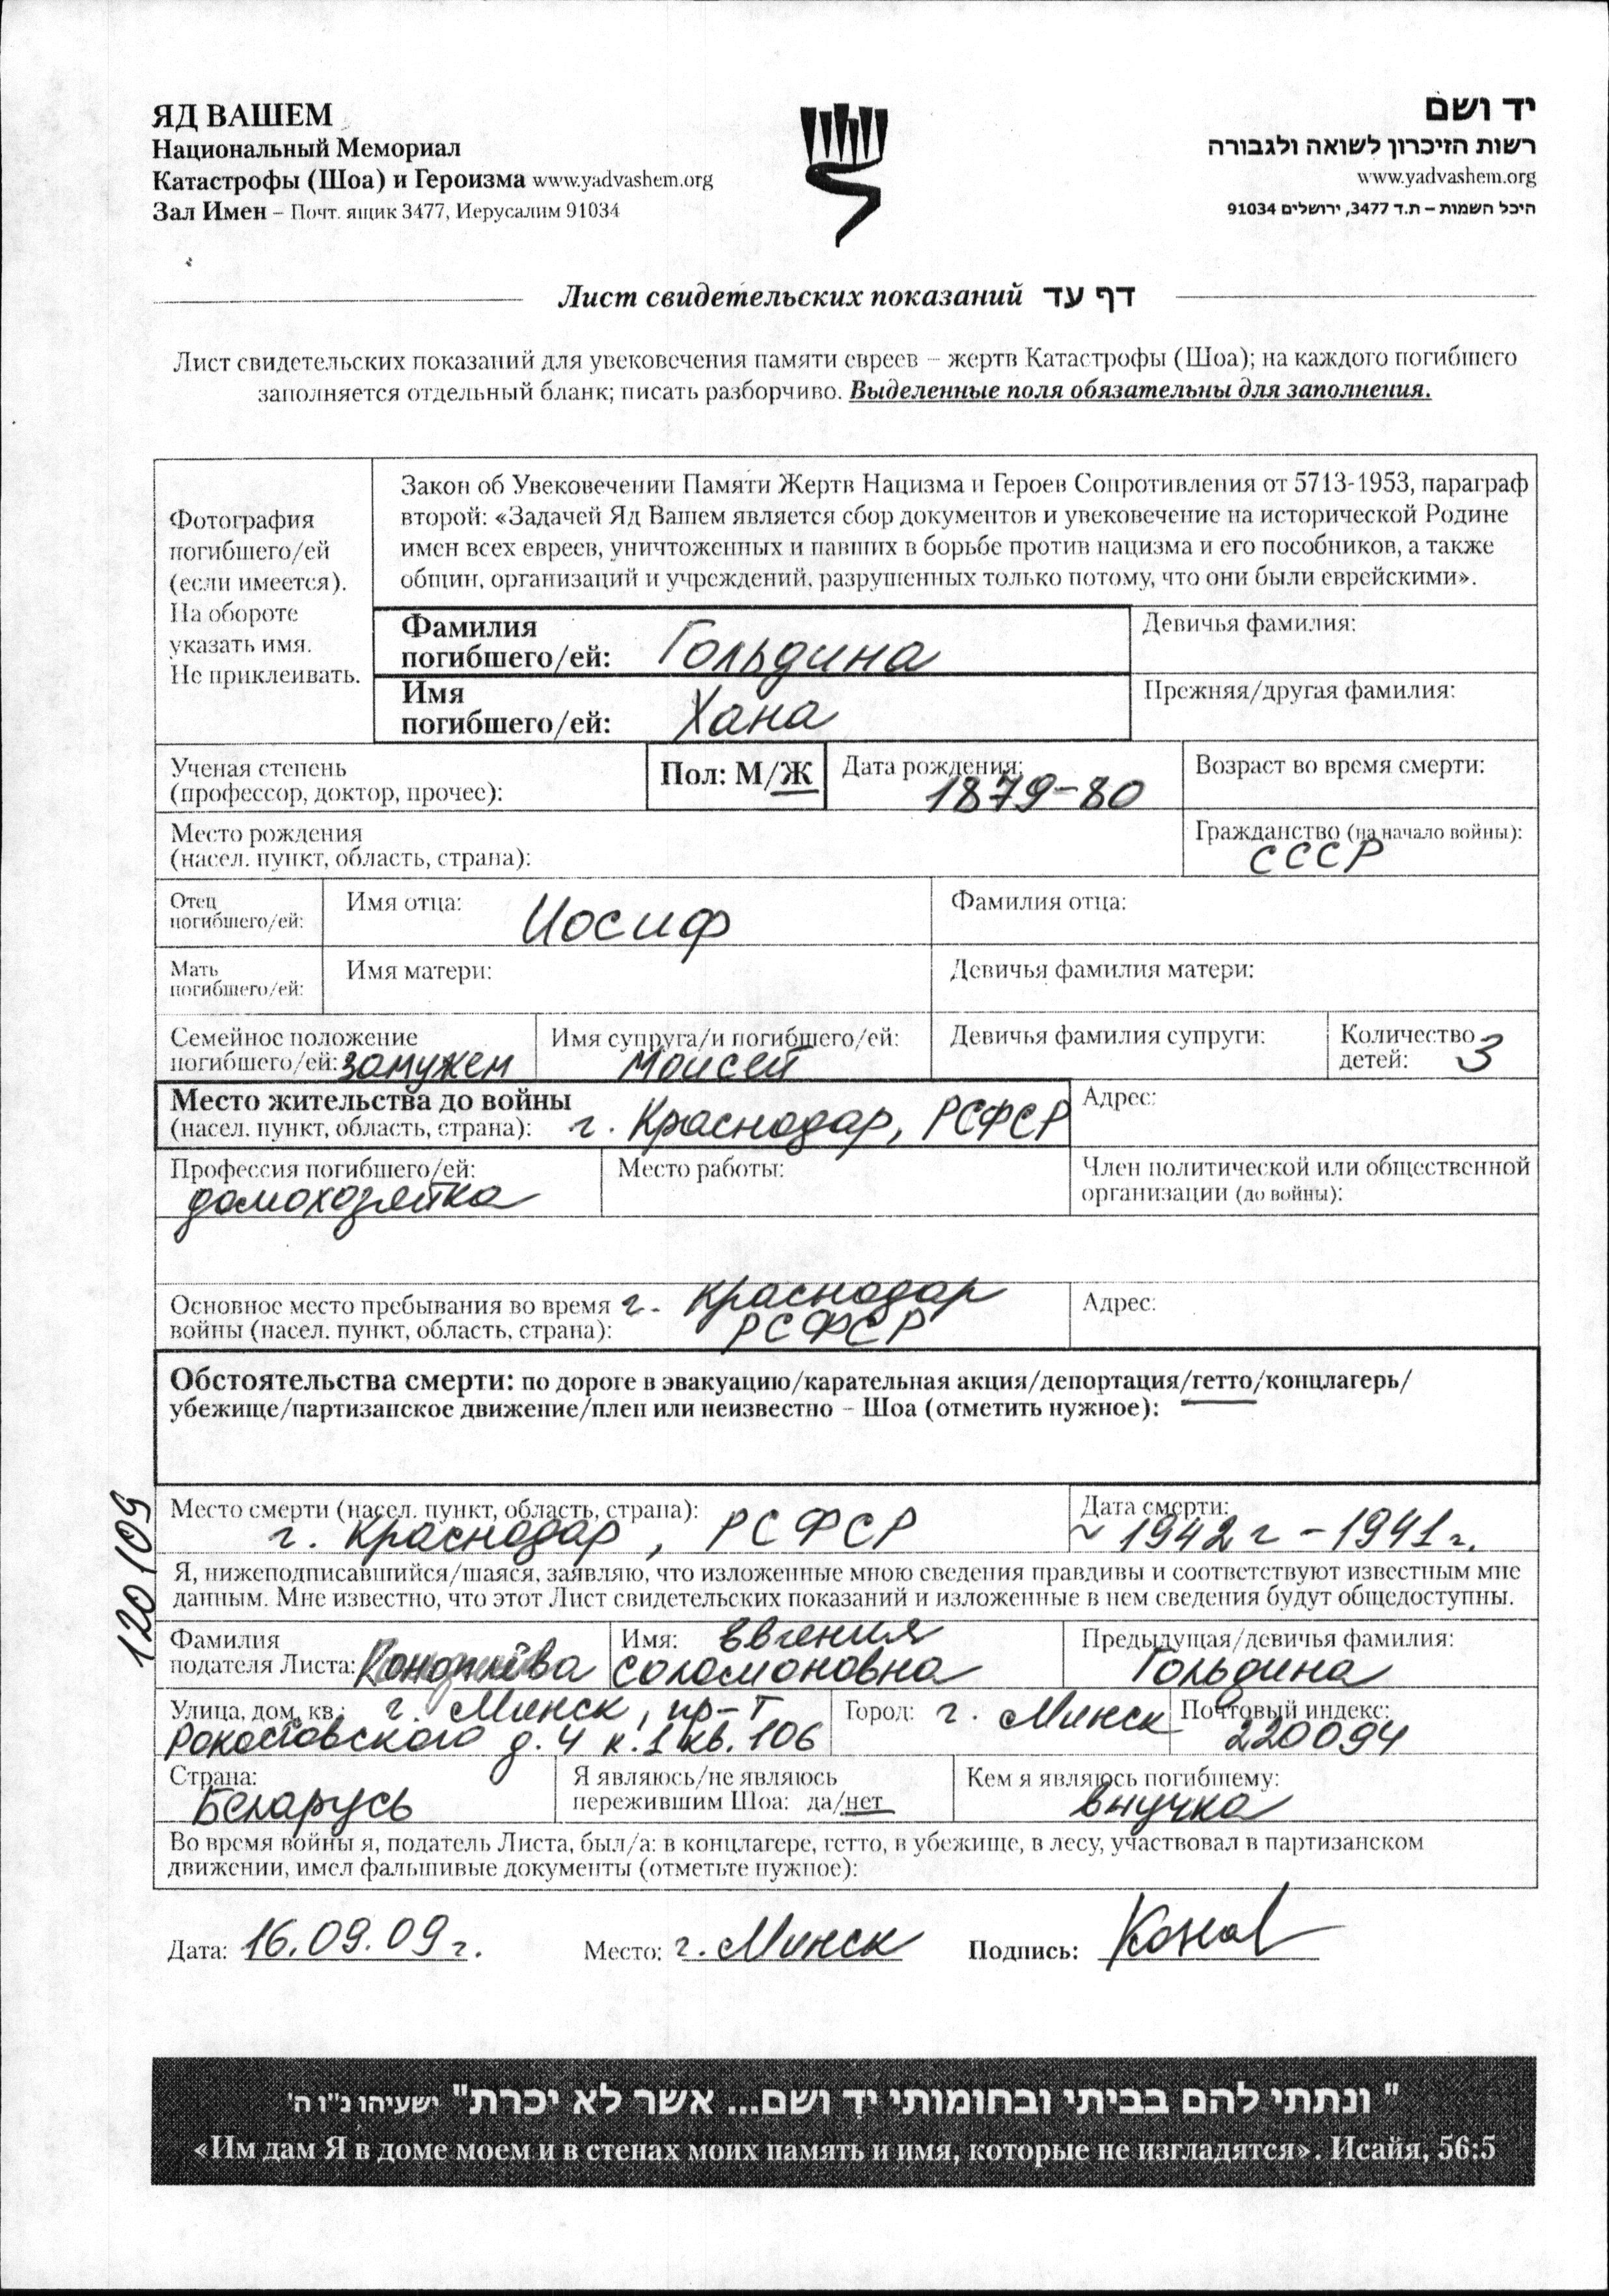 ЯД ВАШЕМ
Национальный Мемориал
Катастрофы (Шоа) и Героизма www.yadvashem.org
Зал Имен – Почт. ящик 3477, Иерусалим 91034
יד ושם
רשות הזיכרון לשואה ולגבורה
www.yadvashem.org
היכל השמות – ת.ד 3477, ירושלים 91034
Лист свидетельских показаний דף עד
Лист свидетельских показаний для увековечения памяти евреев – жертв Катастрофы (Шоа); на каждого погибшего
заполняется отдельный бланк; писать разборчиво. Выделенные поля обязательны для заполнения.
Фотография
погибшего/ей
(если имеется).
На обороте
указать имя.
Не приклеивать.
Закон об Увековечении Памяти Жертв Нацизма и Героев Сопротивления от 5713-1953, параграф
второй: «Задачей Яд Вашем является сбор документов и увековечение на исторической Родине
имен всех евреев, уничтоженных и павших в борьбе против нацизма и его пособников, а также
общин, организаций и учреждений, разрушенных только потому, что они были еврейскими».
Фамилия
погибшего/ей: Гольдина
Девичья фамилия:
Имя
погибшего/ей: Хана
Прежняя/другая фамилия:
Ученая степень
(профессор, доктор, прочее):
Пол: М/Ж
Дата рождения:
1879-80
Возраст во время смерти:
Место рождения
(насел. пункт, область, страна):
Гражданство (на начало войны):
СССР
Отец
погибшего/ей:
Имя отца: Иосиф
Фамилия отца:
Мать
погибшего/ей:
Имя матери:
Девичья фамилия матери:
Семейное положение
погибшего/ей: замужем
Имя супруга/и погибшего/ей:
Моисей
Девичья фамилия супруги:
Количество
детей: 3
Место жительства до войны
(насел. пункт, область, страна): г. Краснодар, РСФСР
Адрес:
Профессия погибшего/ей:
домохозяйка
Место работы:
Член политической или общественной
организации (до войны):
Основное место пребывания во время г. Краснодар
войны (насел. пункт, область, страна): РСФСР
Адрес:
Обстоятельства смерти: по дороге в эвакуацию/карательная акция/депортация/гетто/концлагерь/
убежище/партизанское движение/плен или неизвестно – Шоа (отметить нужное):
Место смерти (насел. пункт, область, страна):
г. Краснодар, РСФСР
Дата смерти:
~ 1942 г - 1941 г.
Я, нижеподписавшийся/шаяся, заявляю, что изложенные мною сведения правдивы и соответствуют известным мне
данным. Мне известно, что этот Лист свидетельских показаний и изложенные в нем сведения будут общедоступны.
120109
Фамилия
подателя Листа:
Имя: Евгения
Соломоновна
Предыдущая/девичья фамилия:
Гольдина
Улица, дом, кв.: г. Минск, пр-т
Рокоссовского д. 4 к. 1 кв. 106
Город: г. Минск
Почтовый индекс:
220094
Страна:
Беларусь
Я являюсь/не являюсь
пережившим Шоа: да/нет
Кем я являюсь погибшему:
внучка
Во время войны я, податель Листа, был/а: в концлагере, гетто, в убежище, в лесу, участвовал в партизанском
движении, имел фальшивые документы (отметьте нужное):
Дата: 16.09.09 г. Место: г. Минск Подпись:
" ונתתי להם בביתי ובחומותי יד ושם... אשר לא יכרת" ישעיהו נ"ו ה'
«Им дам Я в доме моем и в стенах моих память и имя, которые не изгладятся». Исайя, 56:5